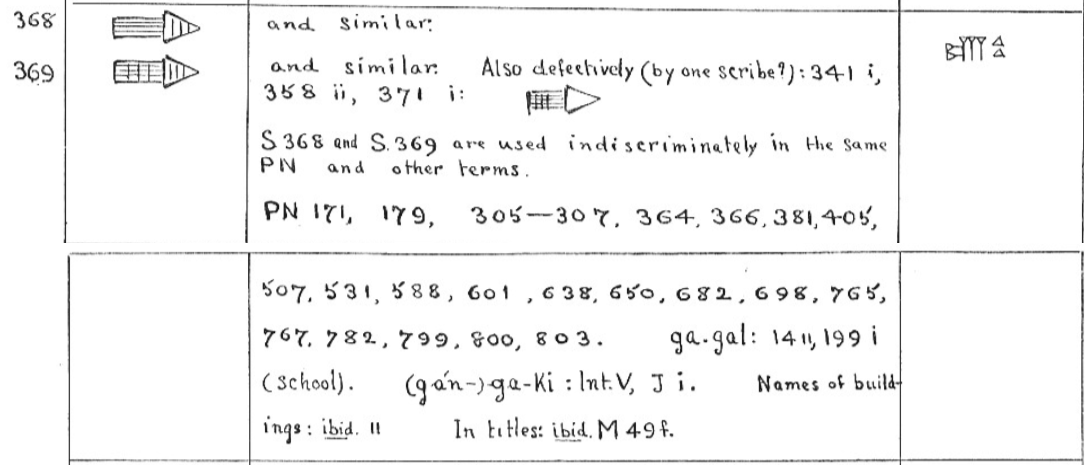 368 and similar:
369 and similar. Also defectively (by one scribe?): 341 i,
358 ii, 371 i:
S 368 and S. 369 are used indiscriminately in the same
PN and other terms.
PN 171, 179, 305—307, 364, 366, 381, 405,
507, 531, 588, 601, 638, 650, 682, 698, 765,
767, 782, 799, 800, 803. ga-gal: 14 ii, 199 i
(school). (gán-)ga-Ki: Int. V, J i. Names of build-
ings: ibid. 11 In titles: ibid. M 49 f.